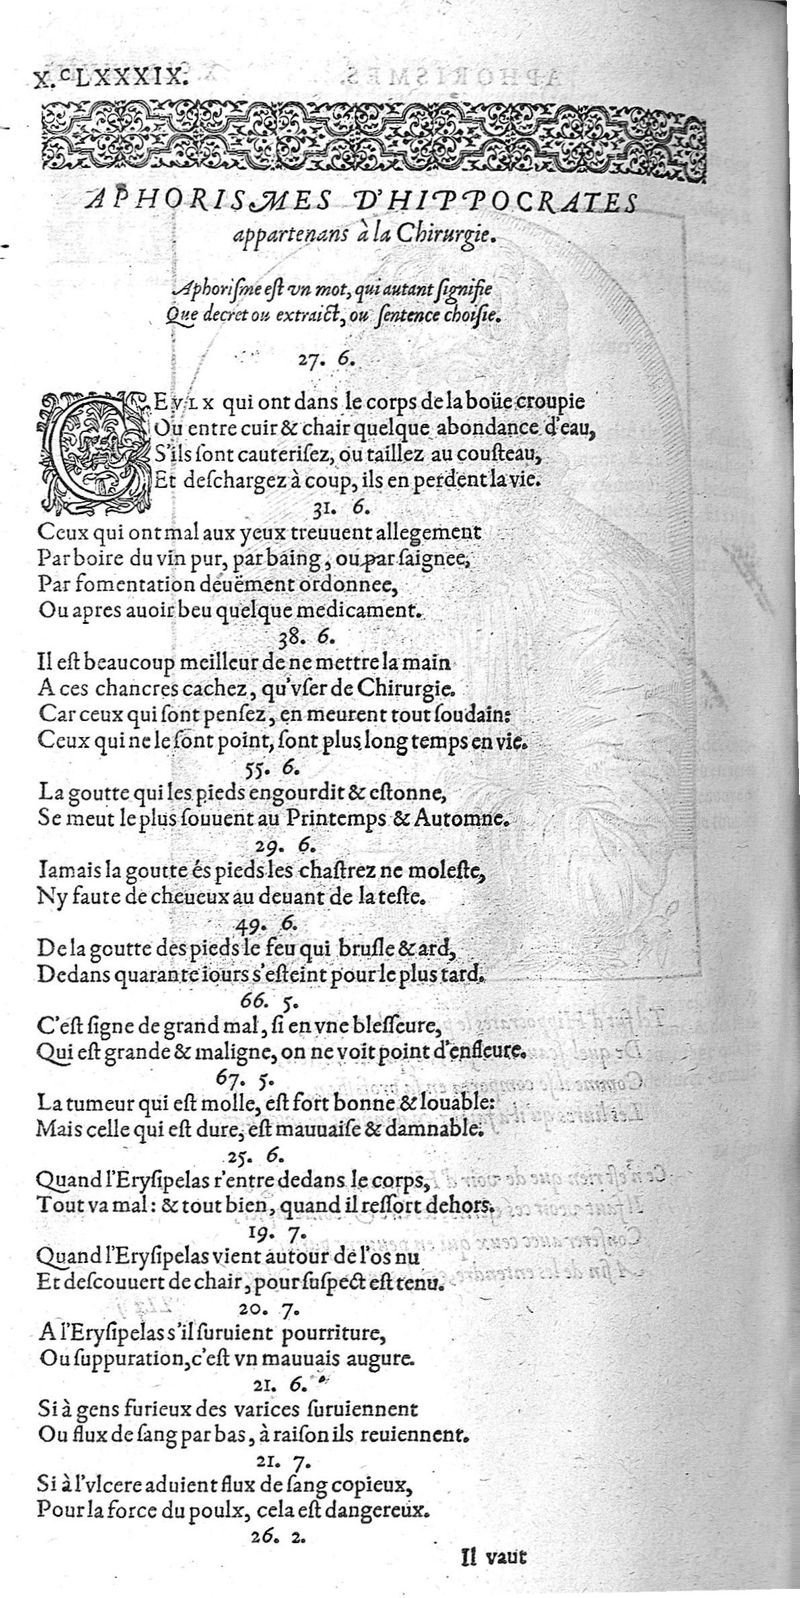 X.cLXXXIX.
APHORISMES D'HIPPOCRATES
appartenans à la Chirurgie.
Aphoriſme eſt vn mot, qui autant ſignifie
Que decret ou extraict, ou ſentence choiſie.
27. 6.
CEVLX qui ont dans le corps de la boüe croupie
Ou entre cuir & chair quelque abondance d'eau,
S'ils ſont cauteriſez, ou taillez au couſteau,
Et deſchargez à coup, ils en perdent la vie.
31. 6.
Ceux qui ont mal aux yeux treuuent allegement
Par boire du vin pur, par baing, ou par ſaignee,
Par fomentation deuëment ordonnee,
Ou apres auoir beu quelque medicament.
38. 6.
Il eſt beaucoup meilleur de ne mettre la main
A ces chancres cachez, qu'vſer de Chirurgie.
Car ceux qui ſont penſez, en meurent tout ſoudain:
Ceux qui ne le ſont point, ſont plus long temps en vie.
55. 6.
La goutte qui les pieds engourdit & eſtonne,
Se meut le plus ſouuent au Printemps & Automne.
29. 6.
Iamais la goutte és pieds les chaſtrez ne moleſte,
Ny faute de cheueux au deuant de la teſte.
49. 6.
De la goutte des pieds le feu qui bruſle & ard,
Dedans quarante iours s'eſteint pour le plus tard.
66. 5.
C'eſt ſigne de grand mal, ſi en vne bleſſeure,
Qui eſt grande & maligne, on ne voit point d'enfleure.
67. 5.
La tumeur qui eſt molle, eſt fort bonne & louable:
Mais celle qui eſt dure, eſt mauuaiſe & damnable.
25. 6.
Quand l'Eryſipelas r'entre dedans le corps,
Tout va mal: & tout bien, quand il reſſort dehors.
19. 7.
Quand l'Eryſipelas vient autour de l'os nu
Et deſcouuert de chair, pour ſuſpect eſt tenu.
20. 7.
A l'Eryſipelas s'il ſuruient pourriture,
Ou ſuppuration, c'eſt vn mauuais augure.
21. 6.
Si à gens furieux des varices ſuruiennent
Ou flux de ſang par bas, à raiſon ils reuiennent.
21. 7.
Si à l'vlcere aduient flux de ſang copieux,
Pour la force du poulx, cela eſt dangereux.
26. 2.
Il vaut